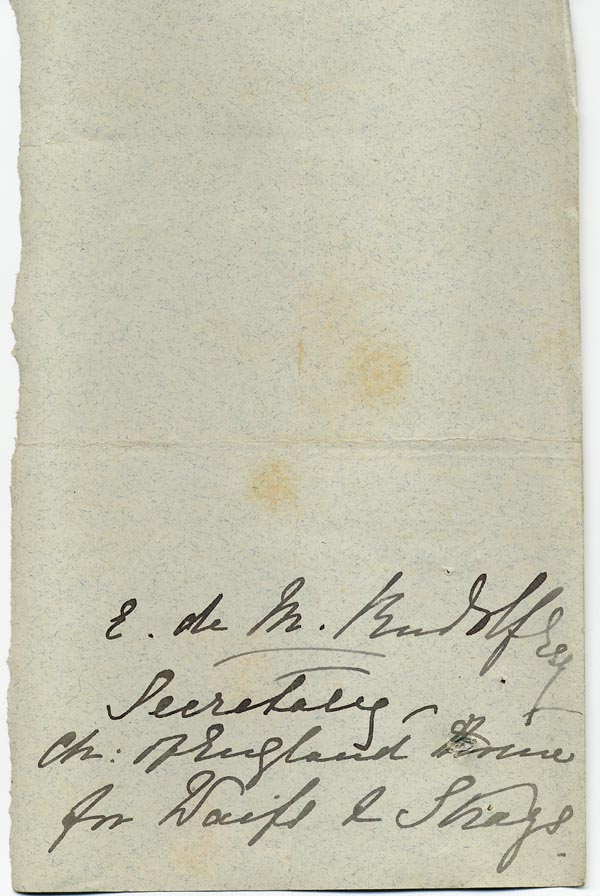 E. de M. Rudolf Esq
Secretary
Ch: of England Home
for Waifs & Strays.